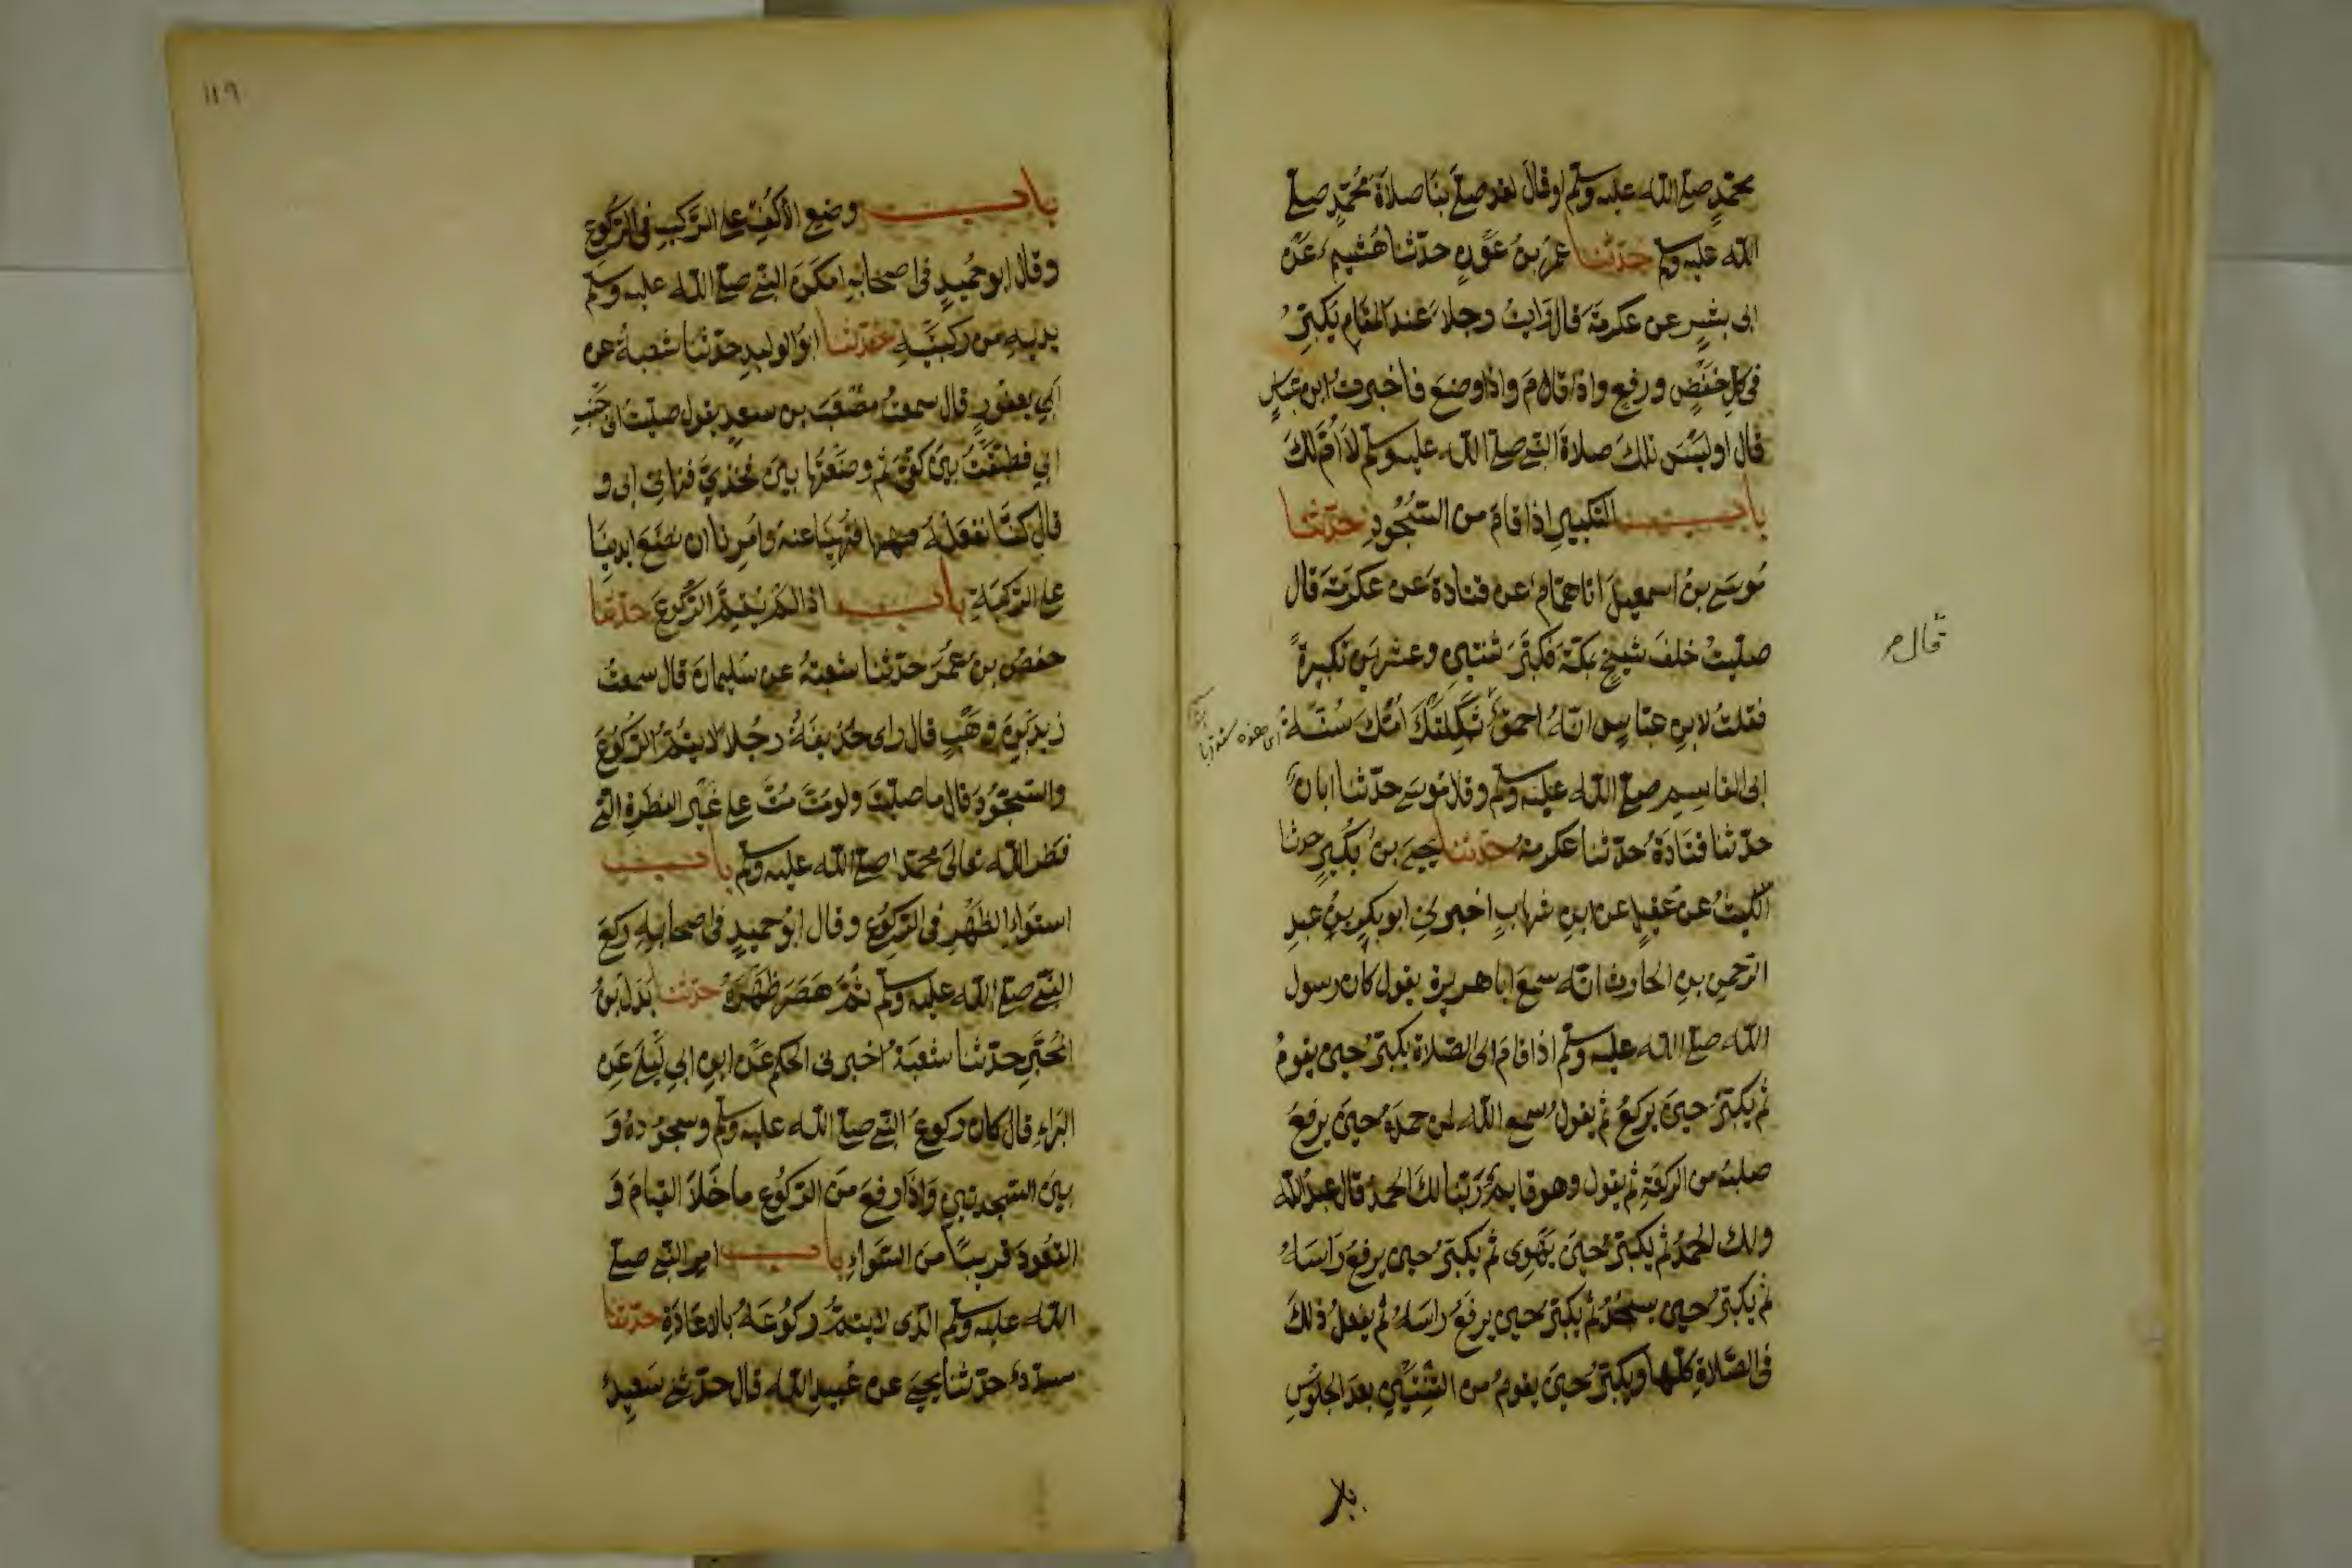 محمد صلى الله عليه وسلم او قال لقد صلى بنا صلاة محمد صلى
الله عليه وسلم حدثنا عمرو بن عون حدثنا هشيم عن
ابى بشر عن عكرمة قال رايت رجلا عند المقام يكبر
فى كل خفض ورفع واذا قام واذا وضع فاخبرت ابن عباس
قال اوليس تلك صلاة النبى صلى الله عليه وسلم لا ام لك
باب التكبير اذا قام من السجود حدثنا
موسى بن اسمعيل انا همام عن قتادة عن عكرمة قال
صليت خلف شيخ بمكة فكبر ثنتين وعشرين تكبيرة
فقلت لابن عباس انه احمق ثكلتك امك سنة
ابى القاسم صلى الله عليه وسلم وقال موسى حدثنا ابان
حدثنا قتادة حدثنا عكرمة حدثنا يحيى بن بكير حدثنا
الليث عن عقيل عن ابن شهاب اخبرنى ابو بكر بن عبد
الرحمن بن الحارث انه سمع ابا هريرة يقول كان رسول
الله صلى الله عليه وسلم اذا قام الى الصلاة يكبر حين يقوم
ثم يكبر حين يركع ثم يقول سمع الله لمن حمده حين يرفع
صلبه من الركعة ثم يقول وهو قايم ربنا لك الحمد قال عبد الله
ولك الحمد ثم يكبر حين يهوى ثم يكبر حين يرفع راسه
ثم يكبر حين يسجد ثم يكبر حين يرفع راسه ثم يفعل ذلك
فى الصلاة كلها ويكبر حين يقوم من الثنتين بعد الجلوس
قال
١١٩
باب وضع الأكف على الركب فى الركوع
وقال ابو حميد فى اصحابه امكن النبى صلى الله عليه وسلم
يديه من ركبتيه حدثنا ابو الوليد حدثنا شعبة عن
ابي يعفور قال سمعت مصعب بن سعد يقول صليت الى جنب
ابي فطبقت بين كفى ثم وضعتها بين فخذي فنهانى ابى و
قال كنا نفعله فنهينا عنه وامرنا ان نضع ايدينا
على الركبة باب اذا لم يتم الركوع حدثنا
حفص بن عمر حدثنا شعبة عن سليمان قال سمعت
زيد بن وهب قال راى حذيفة رجلا لا يتم الركوع
والسجود قال ما صليت ولو مت مت على غير الفطرة التى
فطر الله تعالى محمدا صلى الله عليه وسلم باب
استواء الظهر فى الركوع وقال ابو حميد فى اصحابه ركع
النبى صلى الله عليه وسلم ثم هصر ظهره حدثنا بدل بن
المحبر حدثنا شعبة اخبرنى الحكم عن ابن ابي ليلى عن
البراء قال كان ركوع النبى صلى الله عليه وسلم وسجوده و
بين السجدتين واذا رفع من الركوع ما خلا القيام و
القعود قريبا من السواء باب امر النبى صلى
الله عليه وسلم الذى لا يتم ركوعه بالاعادة حدثنا
مسدد حدثنا يحيى عن عبيد الله قال حدثنى سعيد